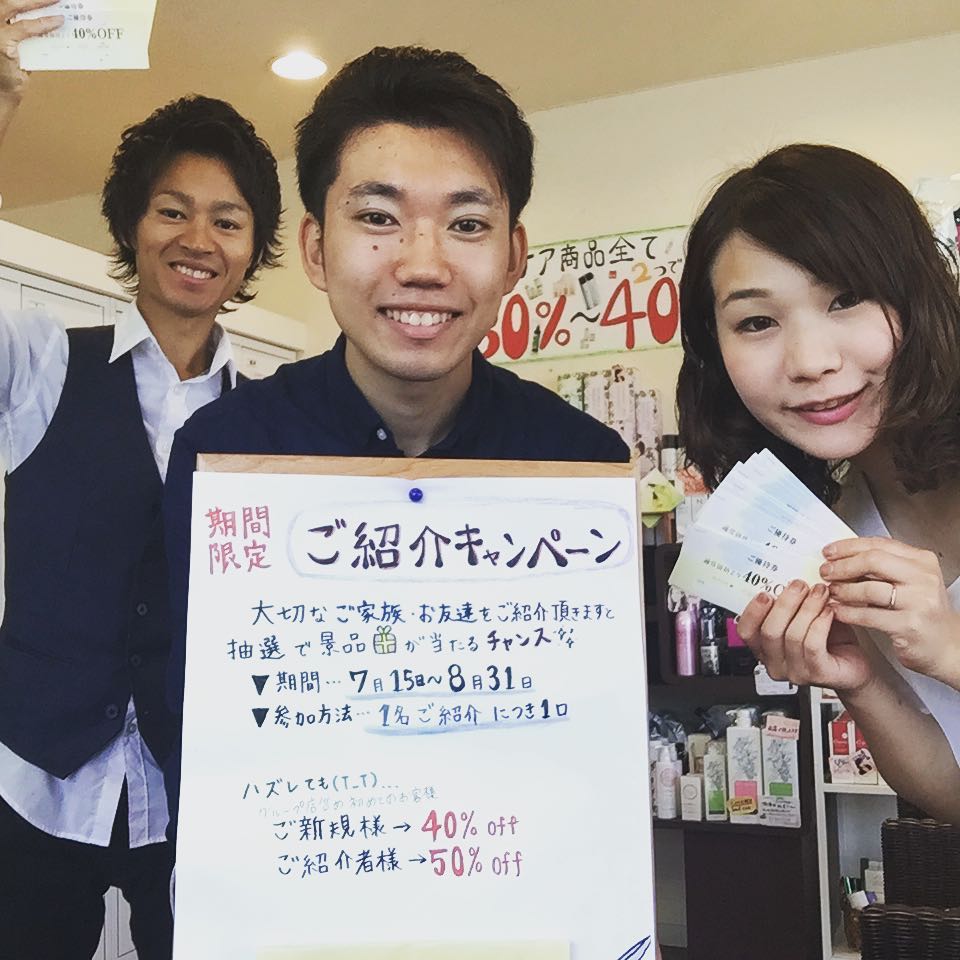 40%OFF
ケア商品全て
2つで
30%~40
期間
限定
ご紹介キャンペーン
大切なご家族・お友達をご紹介頂きますと
抽選で景品が当たるチャンス
▼期間…7月15日~8月31日
▼参加方法…1名ご紹介につき1口
ハズレても(T_T)…
グループ店含め初めてのお客様
ご新規様→40% off
ご紹介者様→50% off
ご優待券
ご優待券
40%O